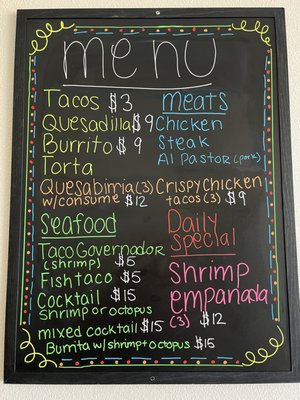 menu
Tacos $3
Quesadilla $9
Burrito $9
Torta
meats
Chicken
Steak
Al Pastor (pork)
Quesabirria (3)
w/consume $12
Crispy Chicken
tacos (3) $9
Seafood
Taco Governador
(shrimp) $5
Fish taco $5
Cocktail $15
Shrimp or octopus
mixed cocktail $15
Burrita w/shrimp + octopus $15
Daily
special
Shrimp
empanada
(3) $12